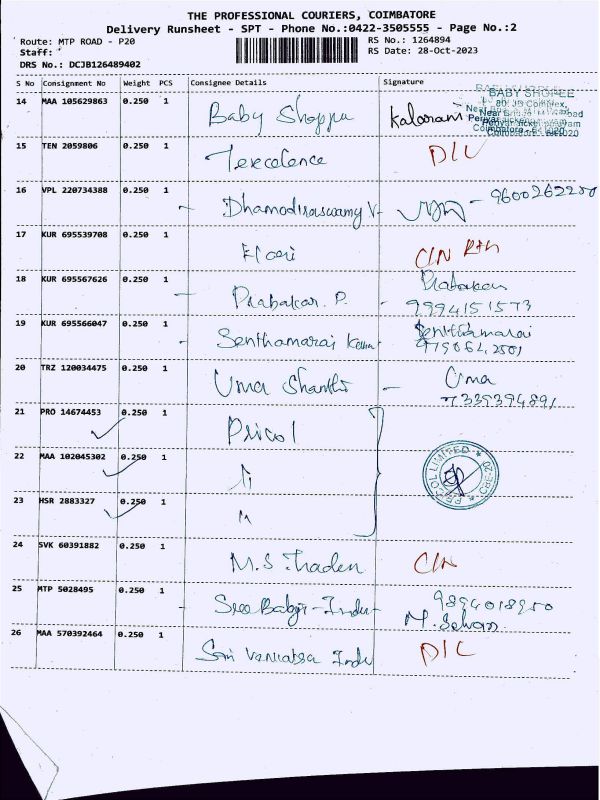 THE PROFESSIONAL COURIERS, COIMBATORE
Delivery Runsheet - SPT - Phone No.:0422-3505555 - Page No.:2
Route: MTP ROAD - P20
RS No.: 1264894
Staff:
RS Date: 28-Oct-2023
DRS No.: DCJB126489402
S No Consignment No Weight PCS Consignee Details Signature
14 MAA 105629863 0.250 1 Baby Shoppee Kalarani
BABY SHOPEE
80, JB Complex,
15 TEN 2059806 0.250 1 Texcelence D/L
16 VPL 220734388 0.250 1 Dhamodiraswamy V - 9600262200
17 KUR 695539708 0.250 1
18 KUR 695567626 0.250 1 Prabakar. P. - Prabakar
9994151573
19 KUR 695566047 0.250 1 Senthamarai Senthamarai
20 TRZ 120034475 0.250 1 Uma Shanthi - Uma
7339394891
21 PRO 14674453 0.250 1 Pricol
22 MAA 102045302 0.250 1 "
PRICOL LIMITED
23 HSR 2883327 0.250 1 "
24 SVK 60391882 0.250 1 M.S. Traders C/N
25 MTP 5028495 0.250 1 Sree Babji - Indu
9894018950
26 MAA 570392464 0.250 1 Sri Venkatsa Indu D/L